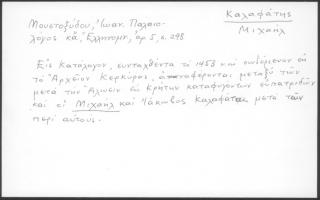 Καλαφάτης
Μιχαήλ
Μουστοξύδου, Ἰωάν. Παλαιο-
λόγος κἄ, Ἑλληνομν, ἀρ 5, σ. 298
Εἰς Κατάλογον, συνταχθέντα τὸ 1453 καὶ σωζόμενον ἐν
τῷ Ἀρχείῳ Κερκύρας, ἀναφέρονται μεταξὺ τῶν
μετὰ τὴν Ἅλωσιν ἐν Κρήτῃ καταφυγόντων εὐπατριδῶν
καὶ οἱ Μιχαὴλ καὶ Ἰάκωβος Καλαφάται μετὰ τῶν
περὶ αὐτούς.